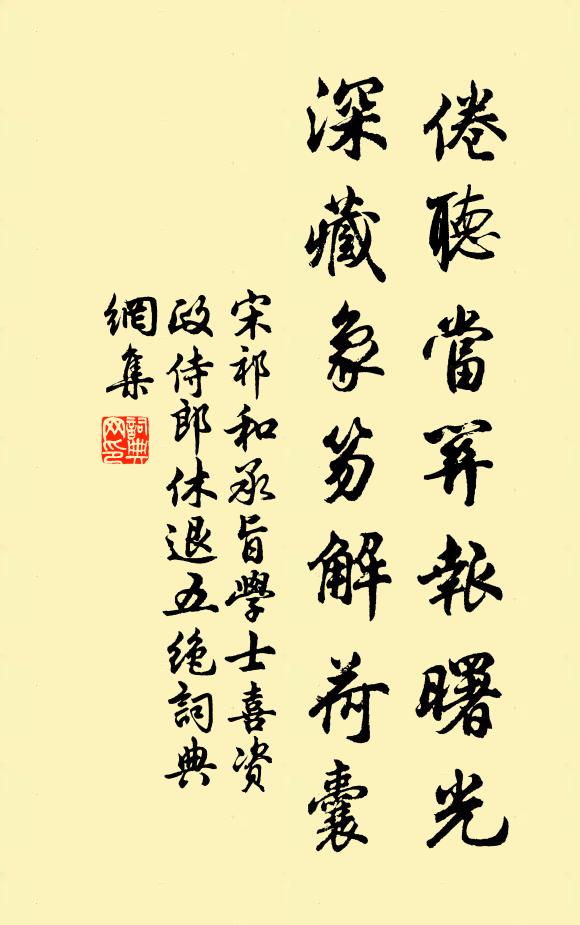 倦聽當關報曙光
深藏象笏解荷囊
宋祁和承旨學士喜資
政侍郎休退五絶詞典
網集
詞典
网印